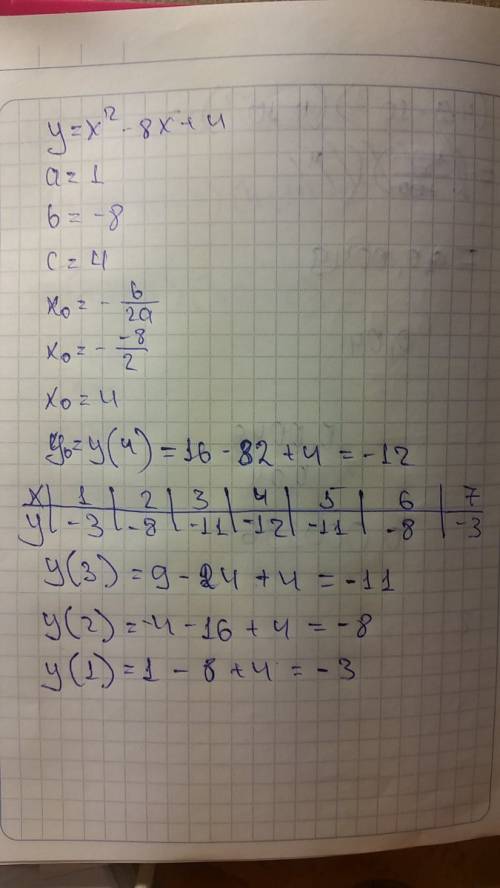 y=x²-8x+4
a=1
b=-8
c=4
x₀=-b/2a
x₀=-(-8)/2
x₀=4
y₀=y(4)=16-32+4=-12
x | 1 | 2 | 3 | 4 | 5 | 6 | 7
y | -3 | -8 | -11 | -12 | -11 | -8 | -3
y(3)=9-24+4=-11
y(2)=4-16+4=-8
y(1)=1-8+4=-3